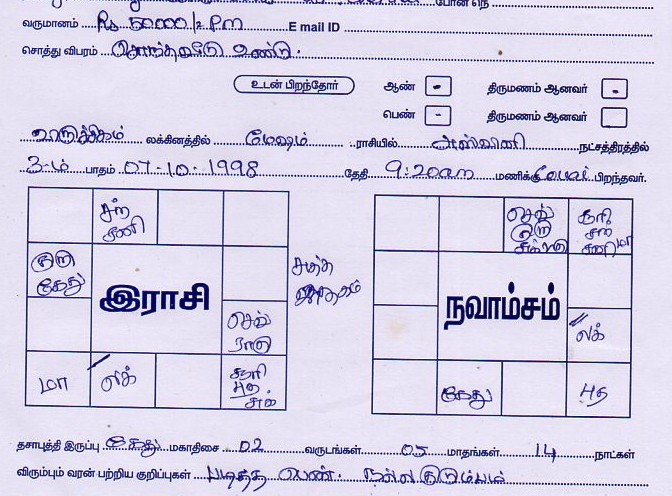 வருமானம் Rs 50000/2 P.m E mail ID
சொத்து விபரம் சொந்தவீடு உண்டு.
உடன் பிறந்தோர் ஆண் - திருமணம் ஆனவர் -
பெண் - திருமணம் ஆனவர்
லக்கினத்தில் மேஷம் ராசியில் அஸ்வினி நட்சத்திரத்தில்
3-ம் பாதம் 07-10-1998 தேதி 9:20am மணிக்கு Covai பிறந்தவர்.
சந்
சனி
குரு
கேது
இராசி
செவ்
ராகு
மா
லக்
சூரி
புத
சுக்
சுத்த
ஜாதகம்
செவ்
குரு
சனி
மா
நவாம்சம்
லக்
கேது
புத
தசாபுத்தி இருப்பு கேது மகாதிசை 02 வருடங்கள் 05 மாதங்கள் 14 நாட்கள்
விரும்பும் வரன் பற்றிய குறிப்புகள் படித்த பெண். நல்ல குடும்பம்